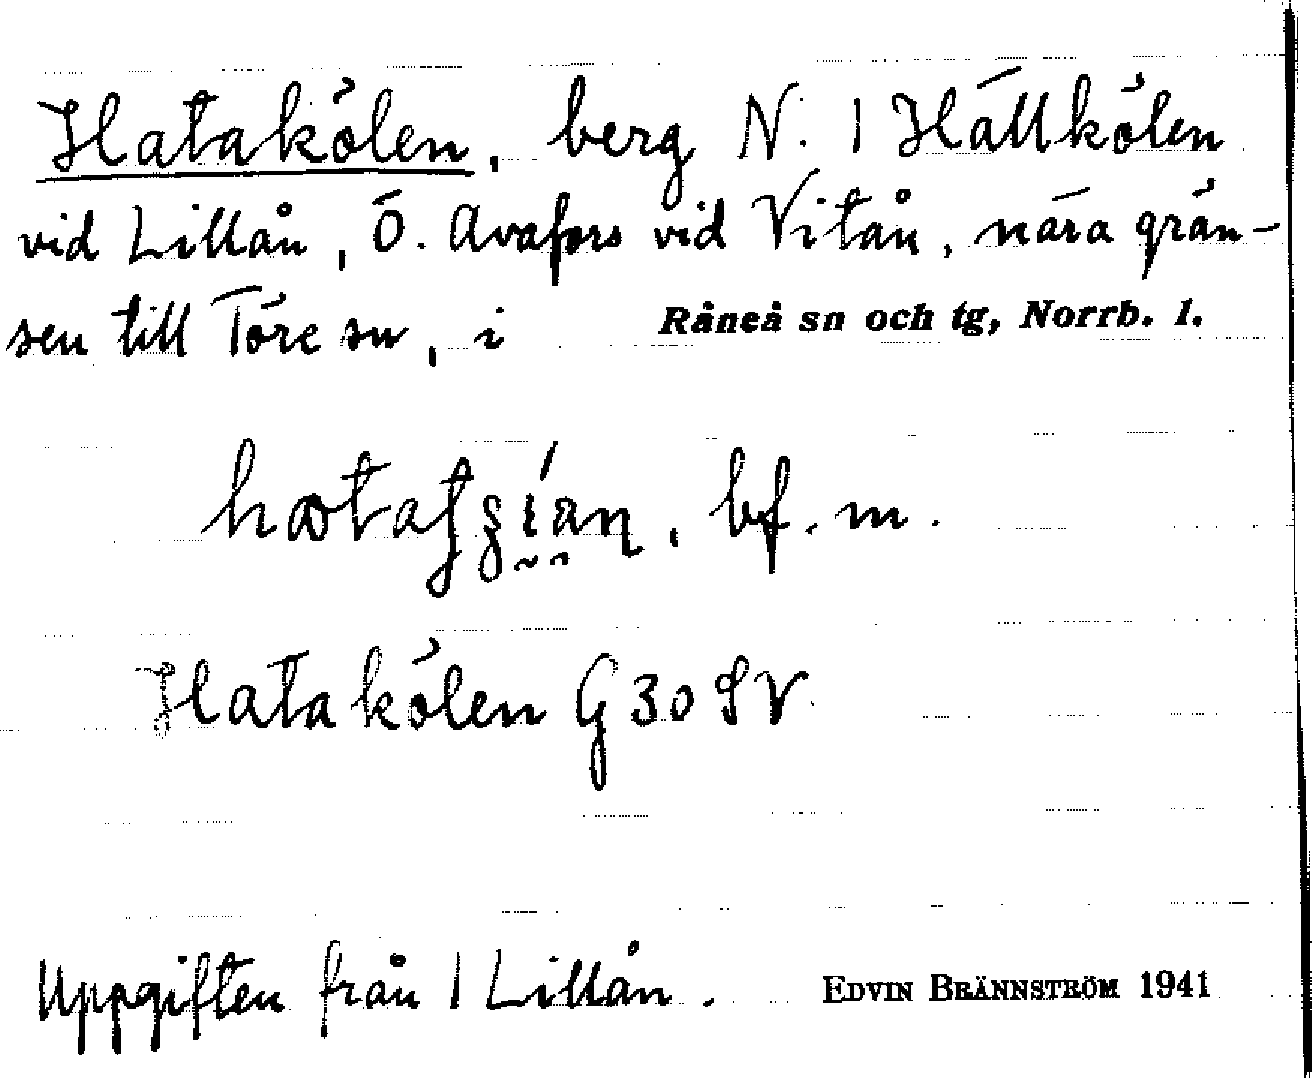 Hatakölen, berg N. | Hällkölen
vid Lillån, Ö. Avafors vid Vitån, nära grän-
sen till Töre sn, i Råneå sn och tg, Norrb. l.
bf. m.
Hatakölen G 30 SV
Uppgiften från | Lillån. EDVIN BRÄNNSTRÖM 1941